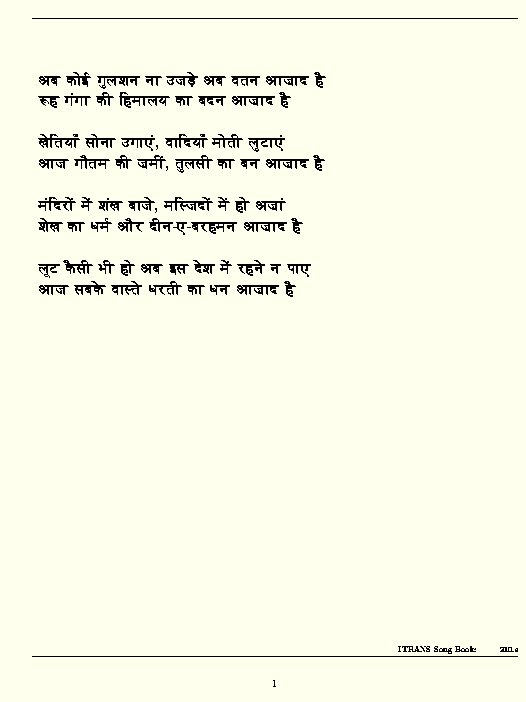 अब कोई गुलशन ना उजड़े अब वतन आज़ाद है
रूह गंगा की हिमालय का बदन आज़ाद है
खेतियाँ सोना उगाएं, वादियाँ मोती लुटाएं
आज गौतम की ज़मीं, तुलसी का बन आज़ाद है
मंदिरों में शंख बाजे, मस्जिदों में हो अज़ां
शेख़ का धर्म और दीन-ए-बरहमन आज़ाद है
लूट कैसी भी हो अब इस देश में रहने न पाए
आज सबके वास्ते धरती का धन आज़ाद है
ITRANS Song Book
1